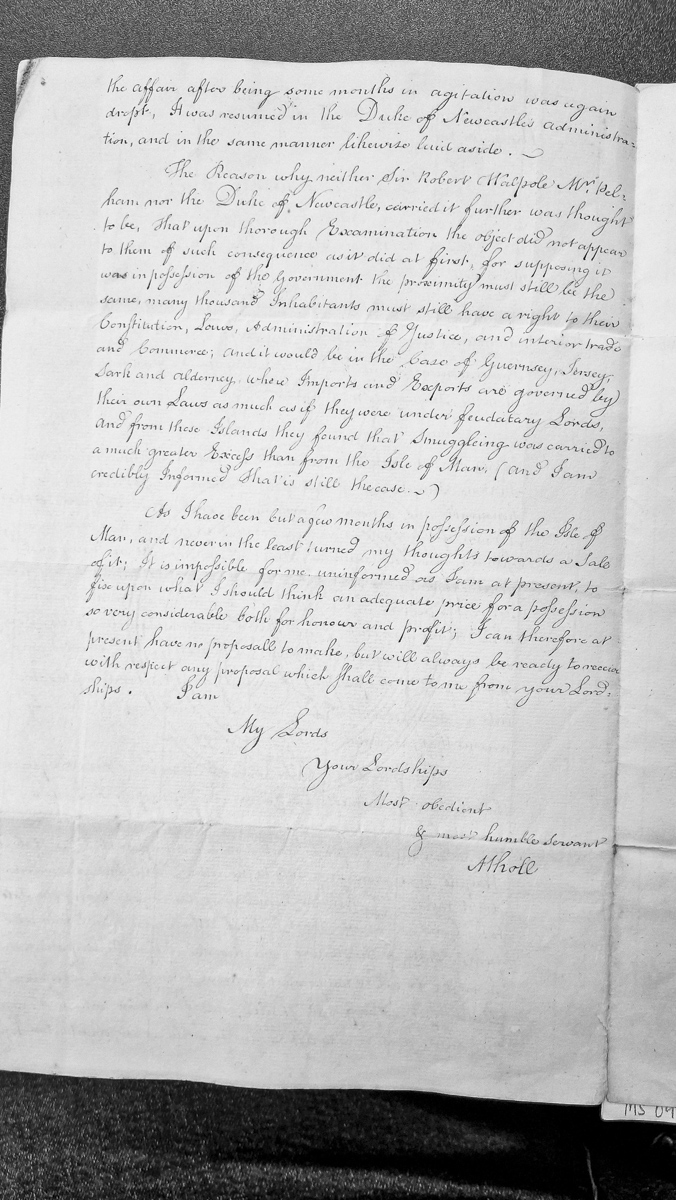 the affair after being some months in agitation was again
dropt, It was resumed in the Duke of Newcastle's administra=
tion, and in the same manner likewise laid aside.
The Reason why neither Sir Robert Walpole Mr. Pel=
ham nor the Duke of Newcastle, carried it further was thought
to be, That upon thorough Examination the object did not appear
to them of such consequence as it did at first, for supposing it
was in possession of the Government the proximity must still be the
same, many thousand Inhabitants must still have a right to their
Constitution, Laws, Administration of Justice, and interior trade
and Commerce; and it would be in the Case of Guernsey, Jersey,
Sark and alderney, whose Imports and Exports are governed by
their own Laws as much as if they were under feudatary Lords,
and from these Islands they found that Smuggleing was carried to
a much greater Excess than from the Isle of Man, (and I am
credibly Informed That is still the case.)
As I have been but a few months in possession of the Isle of
Man, and never in the least turned my thoughts towards a Sale
of it; It is impossible for me uninformed as I am at present, to
fix upon what I should think an adequate price for a possession
so very considerable both for honour and profit; I can therefore at
present have no proposall to make, but will always be ready to receive
with respect any proposal which shall come to me from your Lord=
ships. I am
My Lords
Your Lordships
Most obedient
& most humble servant
Atholl
MS 09